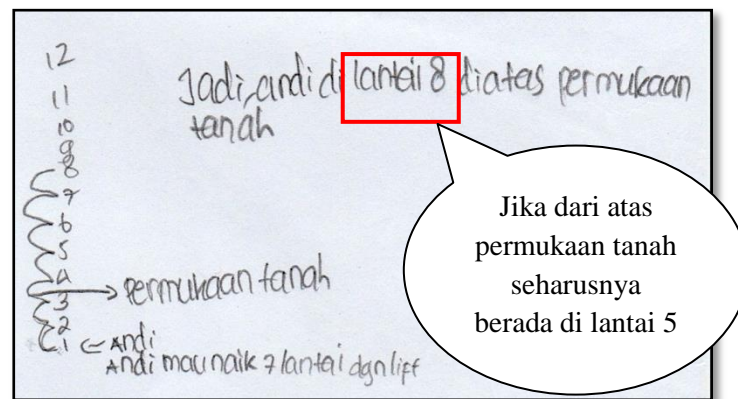 12
11
10
9
8
7
6
5
4
3
2
1
Jadi, andi di lantai 8 diatas permukaan
tanah
→ permukaan tanah
← Andi
Andi mau naik 7 lantai dgn lift
Jika dari atas
permukaan tanah
seharusnya
berada di lantai 5